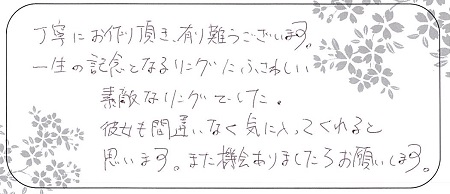 丁寧にお作り頂き、有り難うございます。
一生の記念となるリングにふさわしい
素敵なリングでした。
彼女も間違いなく気に入ってくれると
思います。また機会ありましたらお願いします。